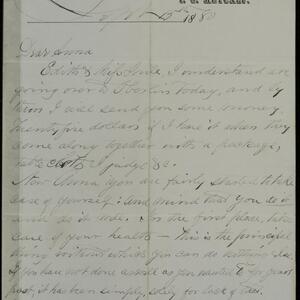 Sept 15th 1880
Dear Anna
Edith & Miss I understand are
going over to Oberlin today, and by
them I will send you some money.
Twenty five dollars if I have it when they
come along together with a package,
I judge &c.
Now Anna you are fairly started to take
care of yourself: and mind that you do so
and do it wise. In the first place, take
care of your health — This is the principal
thing without which you can do nothing else.
If you have not done as well as you wanted to for years
past, it has been simply, solely for lack of this.